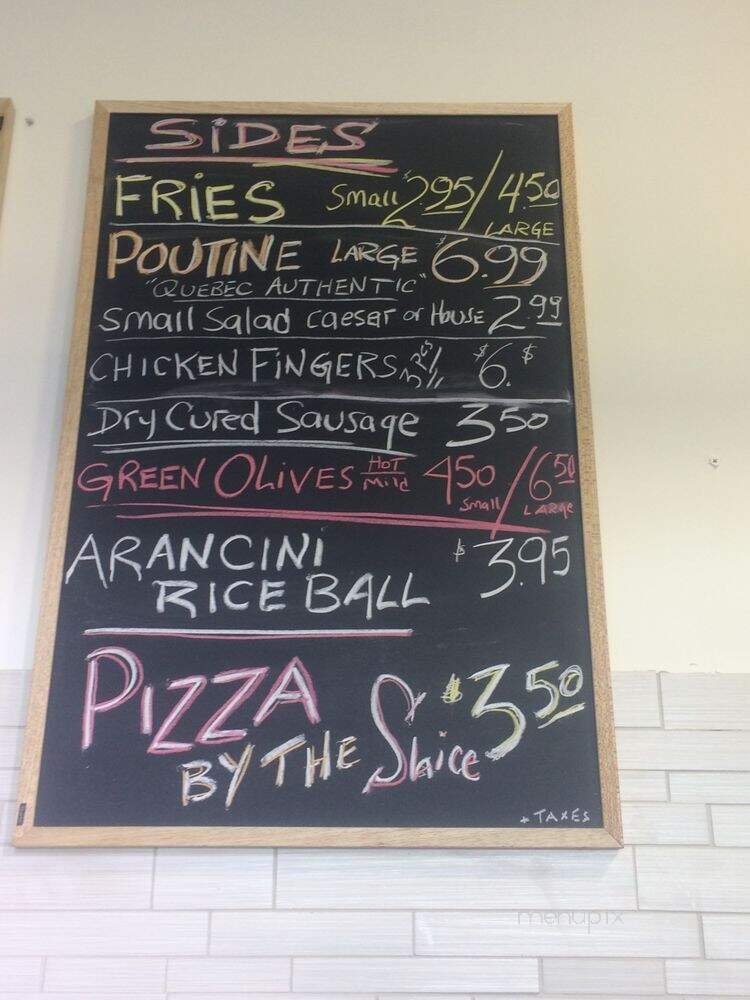 SiDES
FRiES Small $2.95/4.50
LARGE
POUTiNE LARGE $6.99
"QUEBEC AUTHENTIC"
Small Salad caesar or House 2.99
CHICKEN FiNGERS 3 PCS $6.
Dry Cured Sausage 3.50
GREEN OLiVES HOT Mild 4.50/6.50
Small LARGE
ARANCINI $3.95
RICE BALL
PIZZA $3.50
BY THE Slice
+ TAXES
menupix